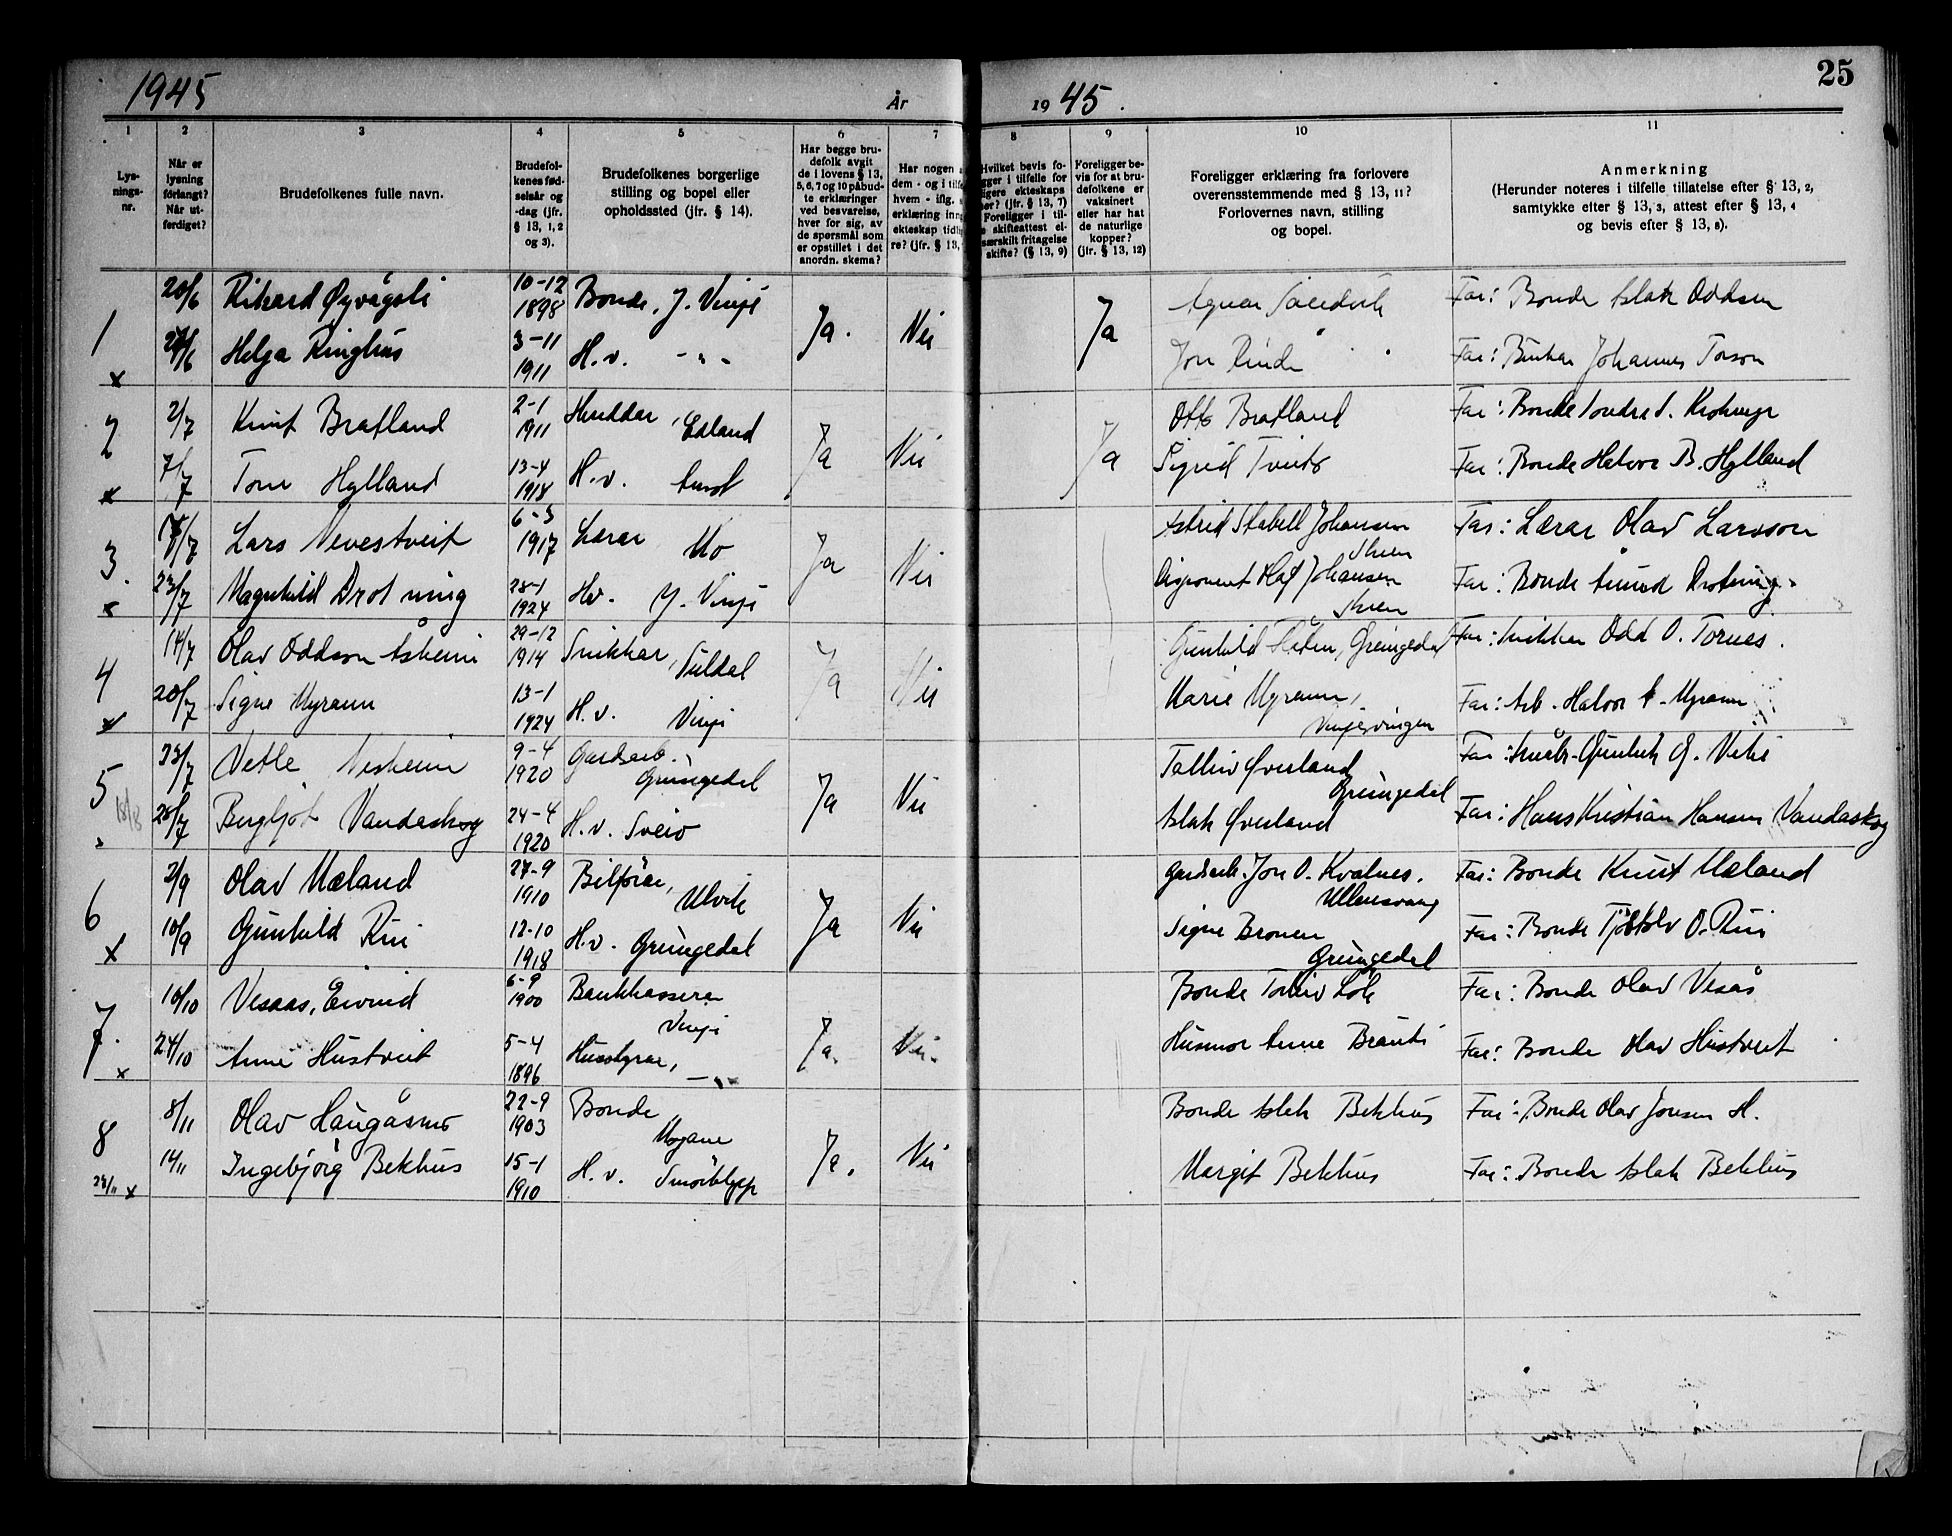 1945 År
19 45. 25
1 2 3 4 5 6 7 8 9 10 11
Lys-
nings-
nr.
Når er
lysning
forlangt?
Når ut-
ferdiget?
Brudefolkenes fulle navn.
Brudefol-
kenes fød-
selsår og
-dag (jfr.
§ 13, 1, 2
og 3).
Brudefolkenes borgerlige
stilling og bopel eller
opholdssted (jfr. § 14).
Har begge bru-
defolk avgit
de i lovens § 13,
5, 6, 7 og 10 påbud-
te erklæringer
ved besvarelse,
hver for sig, av
de spørsmål som
er opstillet i det
anordn. skema?
Har nogen a
dem - og i tilfe
hvem - iflg.
erklæring inng
ekteskap tidli
re? (jfr. § 13,
Hvilket bevis fo-
gger i tilfelle for
ligere ekteskaps
hør? (jfr. § 13, 7)
Foreligger i til-
e skifteattest el-
særskilt fritagelse
skifte? (§ 13, 9)
Foreligger be-
vis for at bru-
defolkene er
vaksinert
eller har hat
de naturlige
kopper?
(jfr. § 13, 12)
Foreligger erklæring fra forlovere
overensstemmende med § 13, 11?
Forlovernes navn, stilling
og bopel.
Anmerkning
(Herunder noteres i tilfelle tillatelse efter § 13, 2,
samtykke efter § 13, 3, attest efter § 13, 4
og bevis efter § 13, 8).
1 20/6 Rikard Øyvågsli 10-12 1898 Bonde, Y. Vinje Ja. Nei Ja Far: Bonde Aslak Oddsen
x Helga Ringhus 3-11 1911 H.v. -"- Jon Rinde Far: Johannes Torson
2 2/7 Knut Bratland 2-1 1911 Edland Ja Nei Ja Otto Bratland Far: Bonde Sondre S.
x 7/7 Tone Hylland 13-4 1918 H.v. Sigrid Tveito Far: Bonde Halvor B. Hylland
3 Lars Nevestveit 6-3 1917 Lærar Mo Ja Nei Astrid Stabell Johansen Skien Far: Lærar Olav Larsson
x 23/7 Magnhild Drotning 28-1 1924 Hv. Y. Vinje Disponent Olaf Johansen Skien Far: Bonde Åmund Drotning.
4 14/7 Olav Oddson Askeim 29-12 1914 Snikkar, Suldal Ja Nei Gunhild Grungedal Far: Snikkar Odd O. Tornes.
x 20/7 Signe Myrann 13-1 1924 H.v. Vinje Marie Myrann, Vinjesvingen Far: Arb. Halvor Myrann
5 23/7 Vetle Nesheim 9-4 1920 Gardsarb. Grungedal Ja Nei Tallev Øverland Grungedal Far: Småbr. Gunleik G.
18/8 28/7 Bergljot Vandaskog 24-4 1920 H.v. Sveio Aslak Øverland Far: Hans Kristian Hansen Vandaskog
6 2/9 Olav Mæland 27-9 1910 Bilførar, Ulvik Ja Nei Gardarb. Jon O. Kvalnes. Ullensvang Far: Bonde Knut Mæland
x 10/9 Gunhild Rui 12-10 1918 H.v. Grungedal Signe Bronen Grungedal Far: Bonde Tjøstolv O. Rui
7. 16/10 Vesaas, Eivind 6-9 1900 Bankkasserar Vinje Ja. Nei. Bonde Torleiv Lok Far: Bonde Olav Vesås
x 24/10 Anne Hustveit 5-4 1896 Husstyrar, -"- Husmor Anne Far: Bonde Olav Hustveit
8 8/11 Olav Haugåsmo 22-9 1903 Bonde Mogane Ja. Nei Bonde Aslak Bekhus Far: Bonde Olav Jonsen H.
24/11 x 14/11 Ingebjørg Bekhus 15-1 1910 H.v. Smørklepp Margit Bekhus Far: Bonde Aslak Bekhus